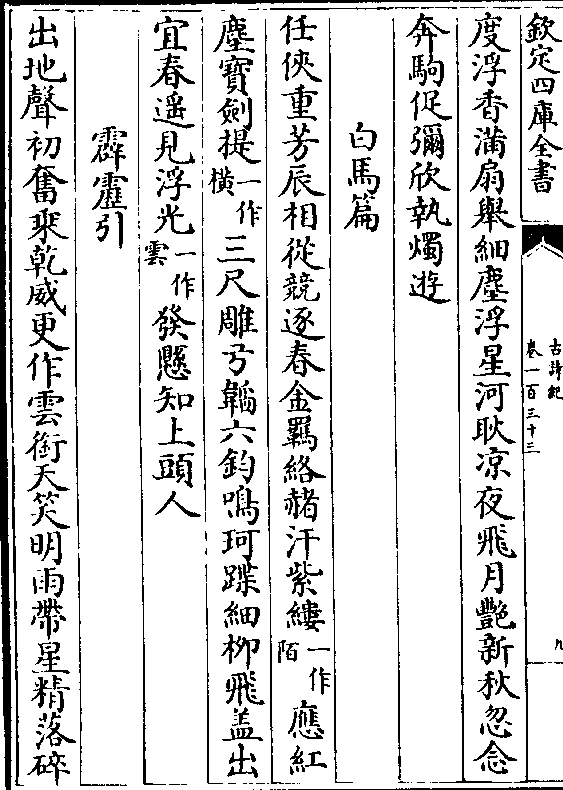 欽定四庫全書
古詩紀
卷一百三十三
九
度浮香滿扇舉細塵浮星河耿凉夜飛月艷新秋忽念
奔駒促彌欣執燭遊
白馬篇
任俠重芳辰相從競逐春金羈絡赭汗紫縷一作陌應紅
塵寶劍提一作横三尺雕弓韜六鈞鳴珂蹀細柳飛盖出
宜春遥見浮光一作雲發懸知上頭人
霹靂引
出地聲初奮乘乾威更作雲銜天笑明雨帶星精落碎